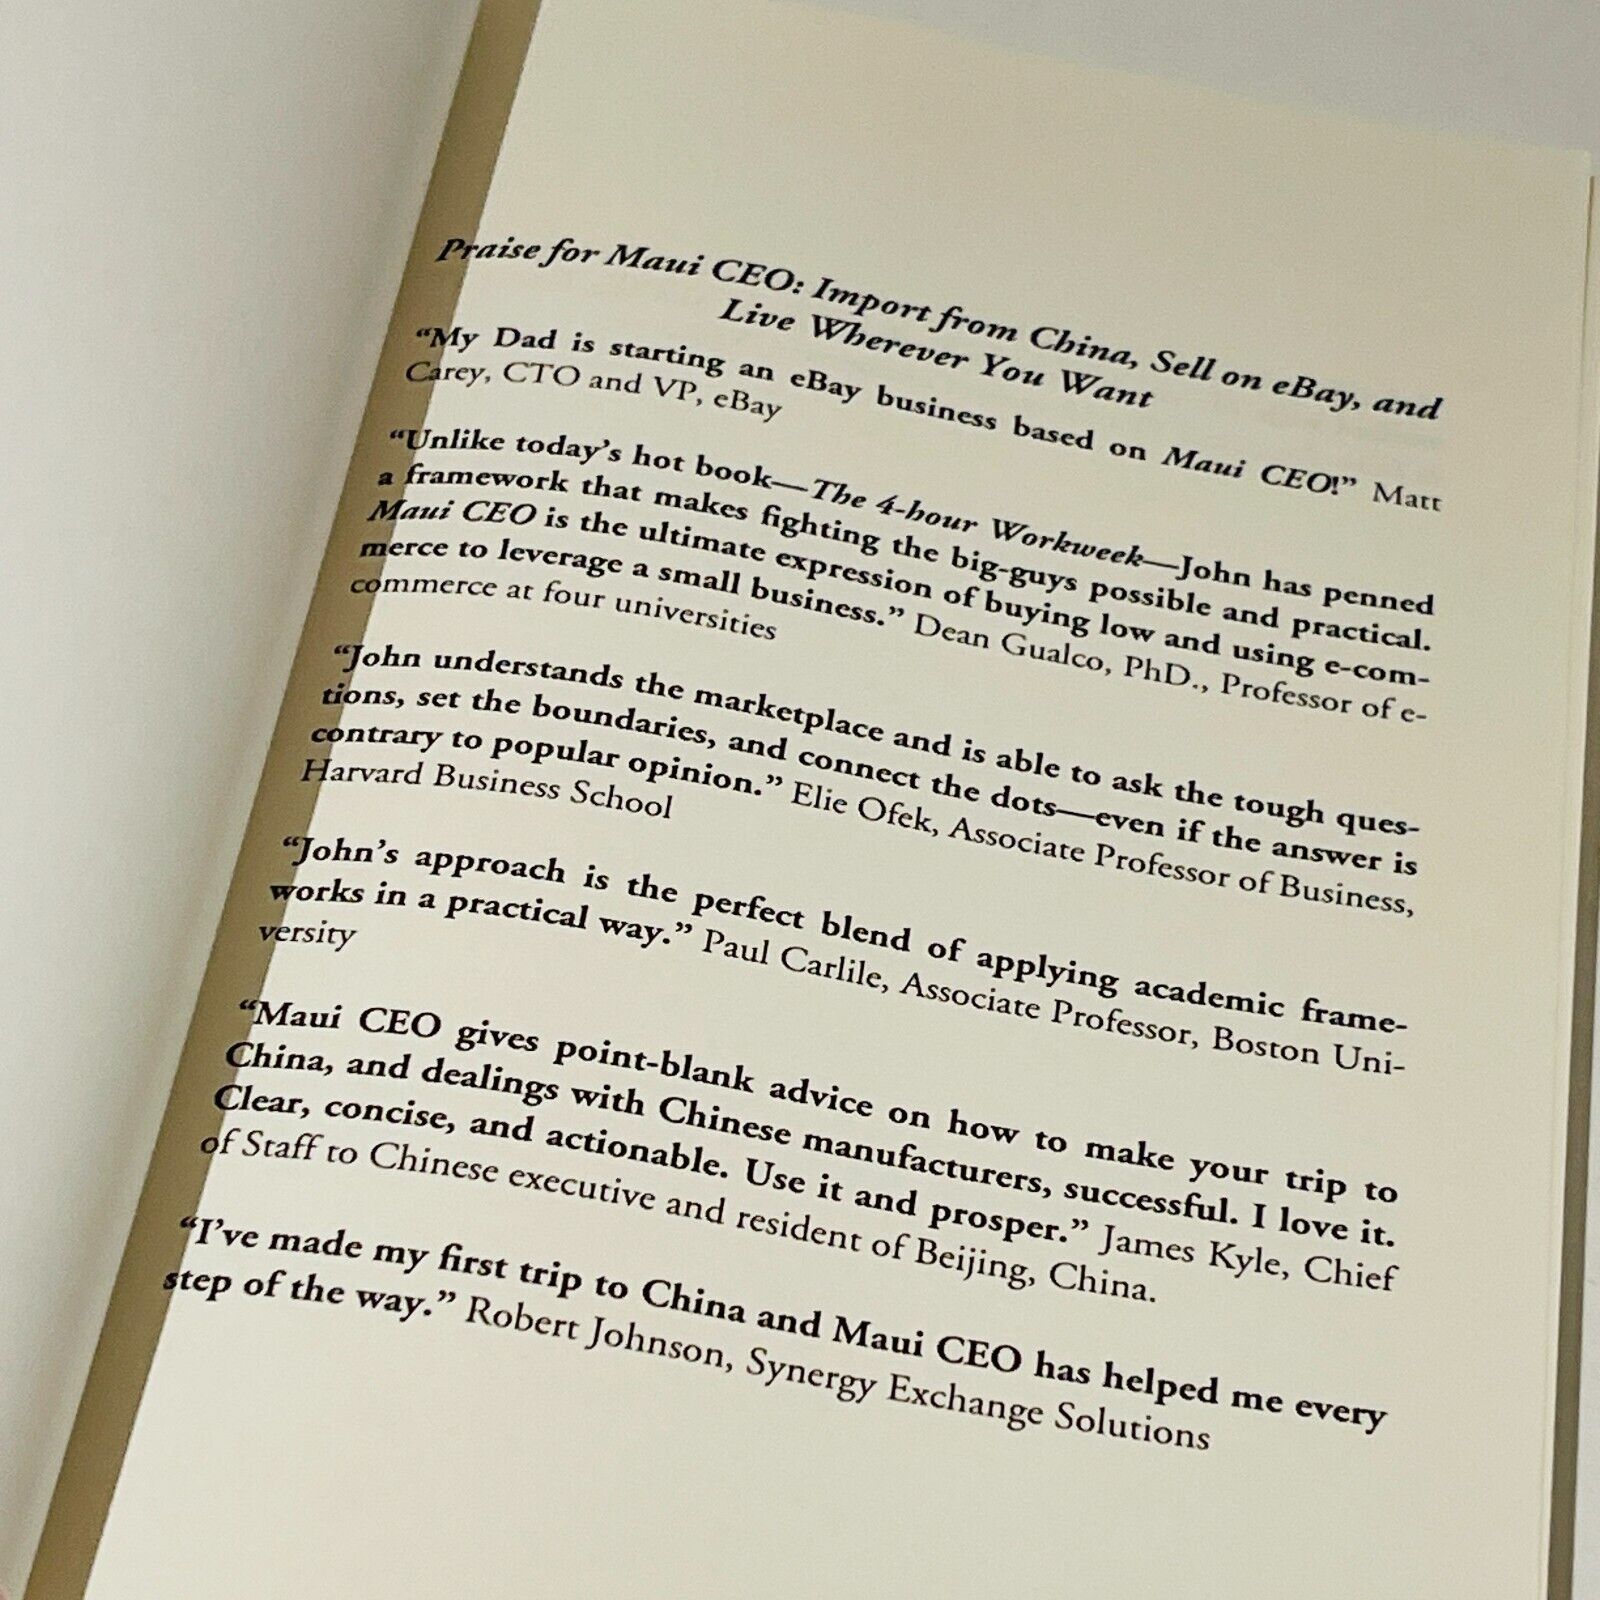 Praise for Maui CEO: Import from China, Sell on eBay, and
Live Wherever You Want
“My Dad is starting an eBay business based on Maui CEO!” Matt
Carey, CTO and VP, eBay
“Unlike today’s hot book—The 4-hour Workweek—John has penned
a framework that makes fighting the big-guys possible and practical.
Maui CEO is the ultimate expression of buying low and using e-com-
merce to leverage a small business.” Dean Gualco, PhD., Professor of e-
commerce at four universities
“John understands the marketplace and is able to ask the tough ques-
tions, set the boundaries, and connect the dots—even if the answer is
contrary to popular opinion.” Elie Ofek, Associate Professor of Business,
Harvard Business School
“John’s approach is the perfect blend of applying academic frame-
works in a practical way.” Paul Carlile, Associate Professor, Boston Uni-
versity
“Maui CEO gives point-blank advice on how to make your trip to
China, and dealings with Chinese manufacturers, successful. I love it.
Clear, concise, and actionable. Use it and prosper.” James Kyle, Chief
of Staff to Chinese executive and resident of Beijing, China.
“I’ve made my first trip to China and Maui CEO has helped me every
step of the way.” Robert Johnson, Synergy Exchange Solutions